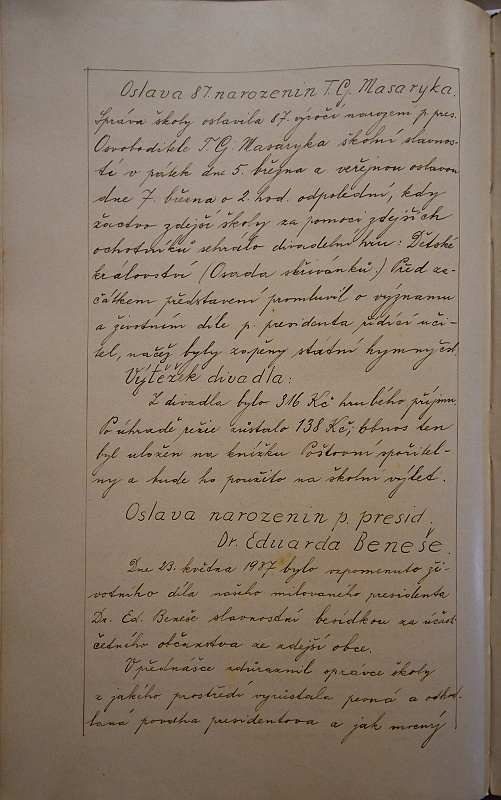 Oslava 87. narozenin T. G. Masaryka.
Správa školy oslavila 87. výročí narození p. pres.
Osvoboditele T. G. Masaryka školní slavnos-
tí v pátek dne 5. března a veřejnou oslavou
dne 7. března o 2. hod. odpolední, kdy
žactvo zdejší školy za pomoci zdejších
ochotníků sehrálo divadelní hru: Dětské
království (Osada skřivánků.) Před za-
čátkem představení promluvil o významu
a životním díle p. presidenta řídící uči-
tel, načež byly zapěny státní hymny čsl.
Výtěžek divadla:
Z divadla bylo 316 Kč hrubého příjmu.
Po úhradě režie zůstalo 138 Kč; obnos ten
byl uložen na knížku Poštovní spořitel-
ny a bude ho použito na školní výlet.
Oslava narozenin p. presid.
Dr. Eduarda Beneše.
Dne 23. května 1937 bylo vzpomenuto ži-
votního díla našeho milovaného presidenta
Dr. Ed. Beneše slavnostní besídkou za účasti
četného občanstva ze zdejší obce.
V přednášce zdůraznil správce školy
z jakého prostředí vyrůstala pevná a odhod-
laná povaha presidentova a jak mocný